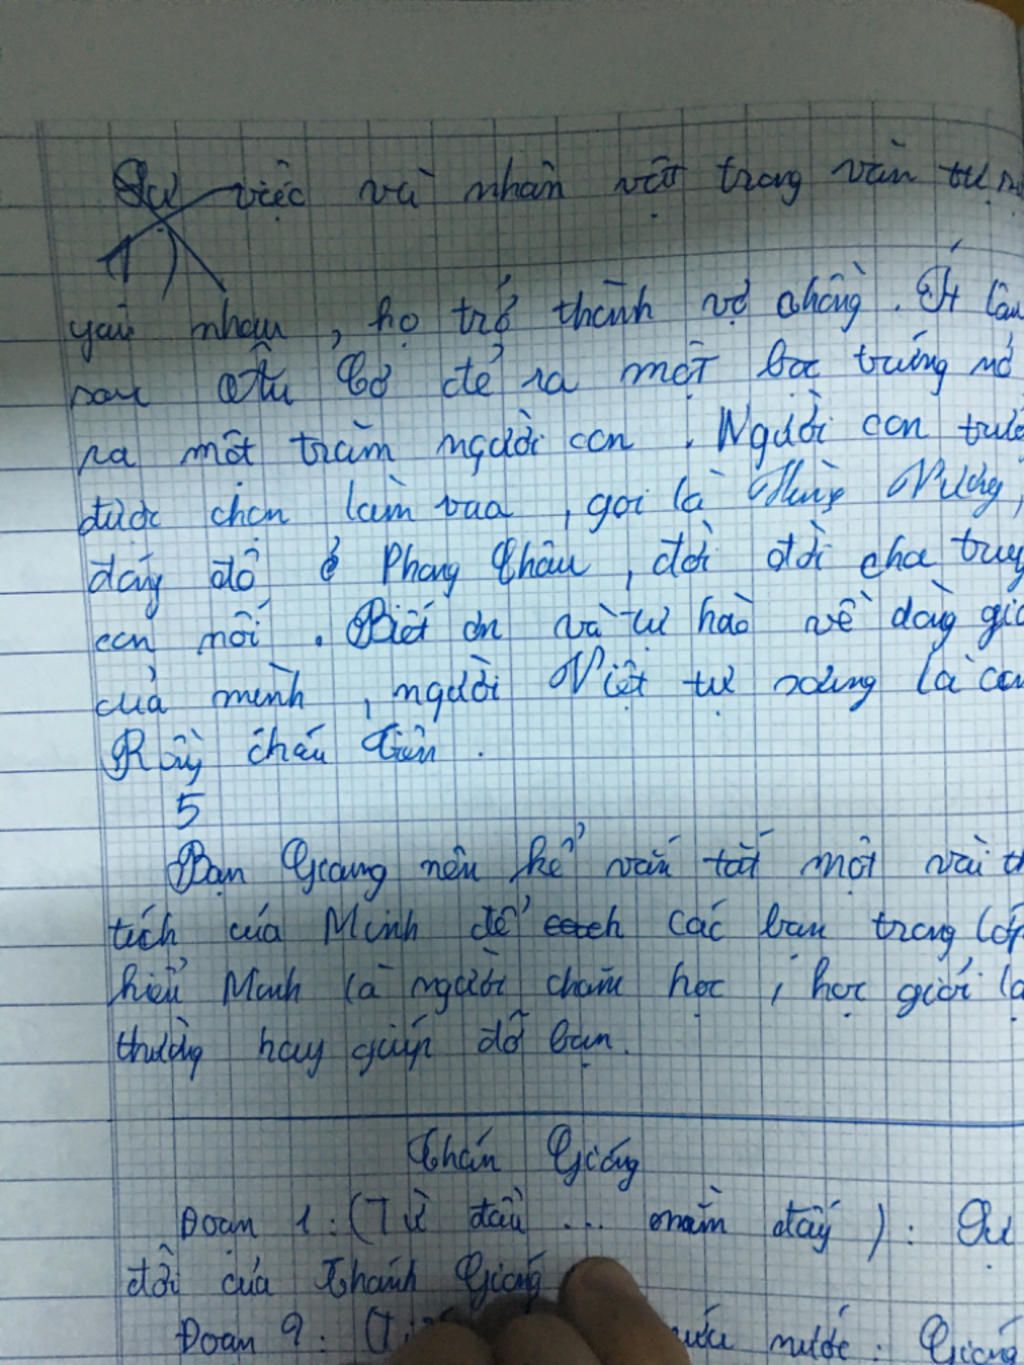 Sự việc và nhân vật trong văn tự
1)
yêu nhau, họ trở thành vợ chồng. Ít lâu
sau Âu Cơ đẻ ra một bọc trứng nở
ra một trăm người con. Người con trưởng
được chọn làm vua, gọi là Hùng Vương,
đóng đô ở Phong Châu, đời đời cha truyền
con nối. Biết ơn và tự hào về dòng giống
của mình, người Việt tự xưng là con
Rồng cháu Tiên.
5
Bạn Giang nên kể vắn tắt một vài
tích của Minh để các bạn trong lớp
hiểu Minh là người chăm học, học giỏi lại
thường hay giúp đỡ bạn.
Thán Gióng
Đoạn 1: (Từ đầu ... nằm đấy): Sự
đời của Thánh Gióng
Đoạn 2: ( nước. Gióng